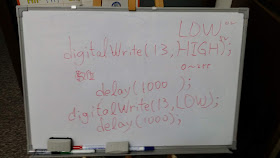 LOW
digitalWrite(13,HIGH);
0~255
delay(1000 );
digitalWrite(13,LOW);
delay(1000);